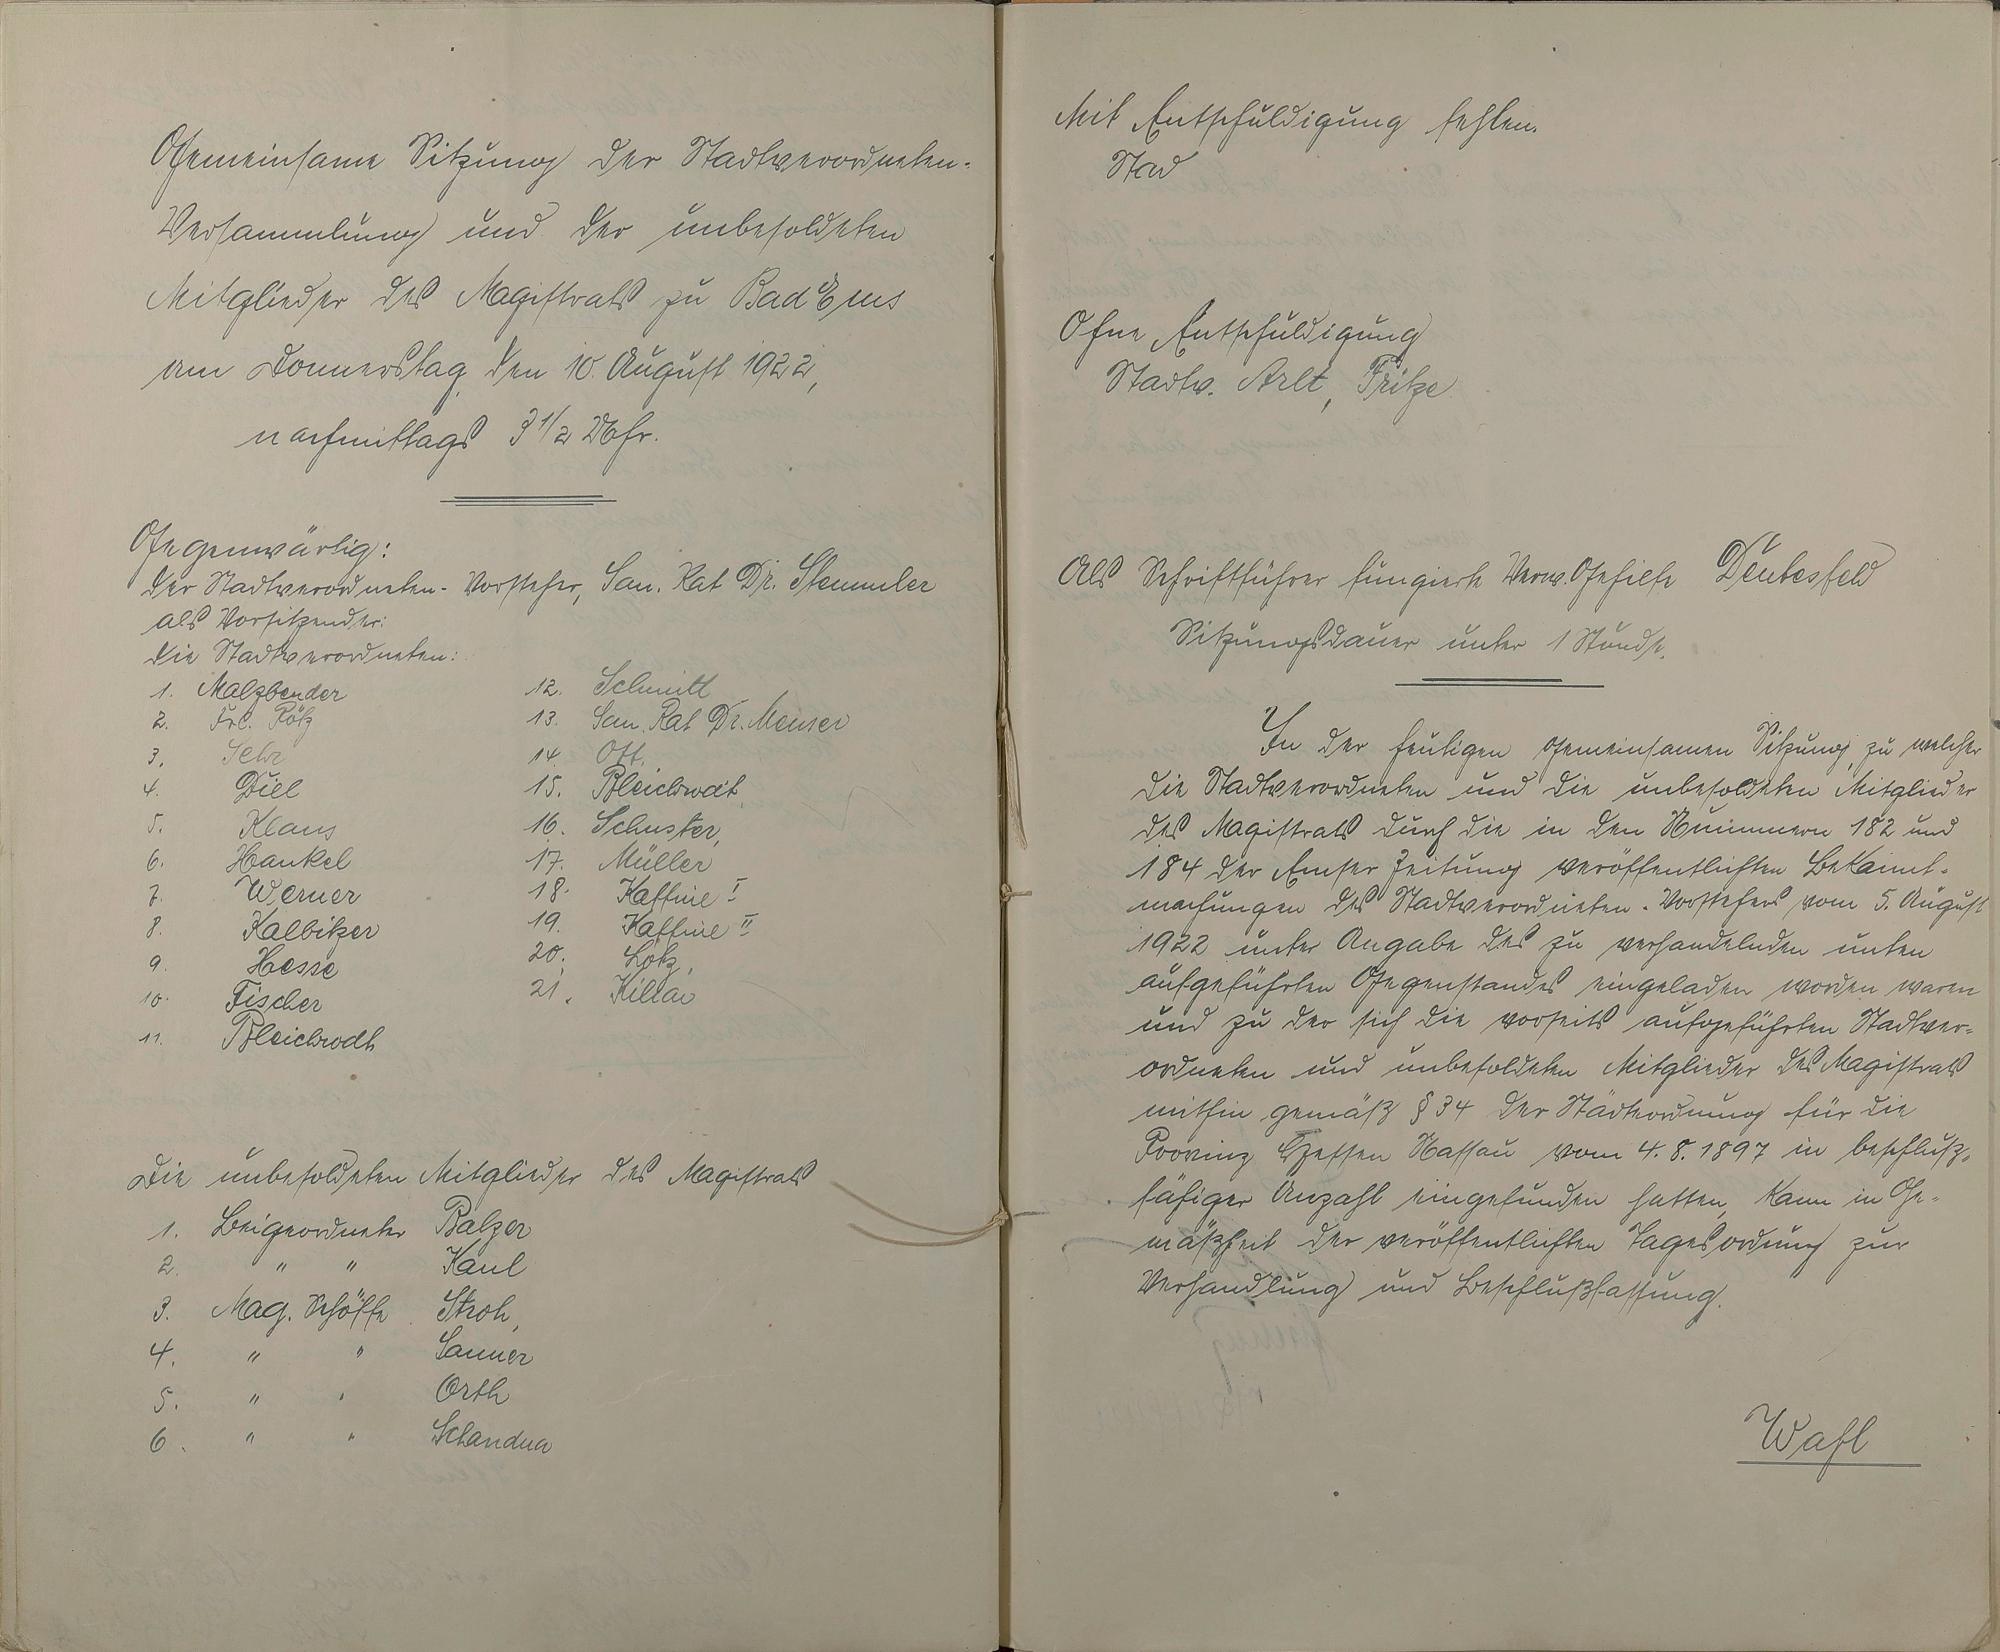 Gemeinsame Sitzung der Stadtverordneten-
Versammlung und der unbesoldeten
Mitglieder des Magistrats zu Bad Ems
am Donnerstag den 10. August 1922,
nachmittags 3 1/2 Uhr.
Gegenwärtig:
der Stadtverordneten-Vorsteher, San. Rat Dr. Stemmler
als Vorsitzender:
die Stadtverordneten:
1. Malzbender
2. Frl. Rötz
3.
4. Diel
5. Klaus
6. Hankel
7. Werner
8. Kalbitzer
9. Hesse
10. Fischer
11. Bleichrodt
12. Schmitt
13. San. Rat Dr. Meuser
14. Ott.
15. Bleichrodt
16. Schuster,
17. Müller
18. Kaffine I
19. Kaffine II
20. Lotz,
21. Killar
Die unbesoldeten Mitglieder des Magistrats
1. Beigeordneter Balzer
2. " " Kaul
3. Mag. Schöffe Stroh,
4. " " Sanner
5. " " Orth
6. " " Schandua
Mit Entschuldigung fehlen.
Ohne Entschuldigung
Stadtv. Arlt, Fritze
Als Schriftführer fungierte Verw. Gehilfe Deutesfeld
Sitzungsdauer unter 1 Stunde.
In der heutigen gemeinsamen Sitzung, zu welcher
die Stadtverordneten und die unbesoldeten Mitglieder
des Magistrats durch die in den Nummern 182 und
184 der Emser Zeitung veröffentlichten Bekannt-
machungen des Stadtverordneten-Vorstehers vom 5. August
1922 unter Angabe des zu verhandelnden unten
aufgeführten Gegenstandes eingeladen worden waren
und zu der sich die vorseits aufgeführten Stadtver-
ordneten und unbesoldeten Mitglieder des Magistrats
mithin gemäß § 34 der Städteordnung für die
Provinz Hessen Nassau vom 4.8.1897 in beschluß-
fähiger Anzahl eingefunden hatten, kam in Ge-
mäßheit der veröffentlichten Tagesordnung zur
Verhandlung und Beschlußfassung.
Wahl